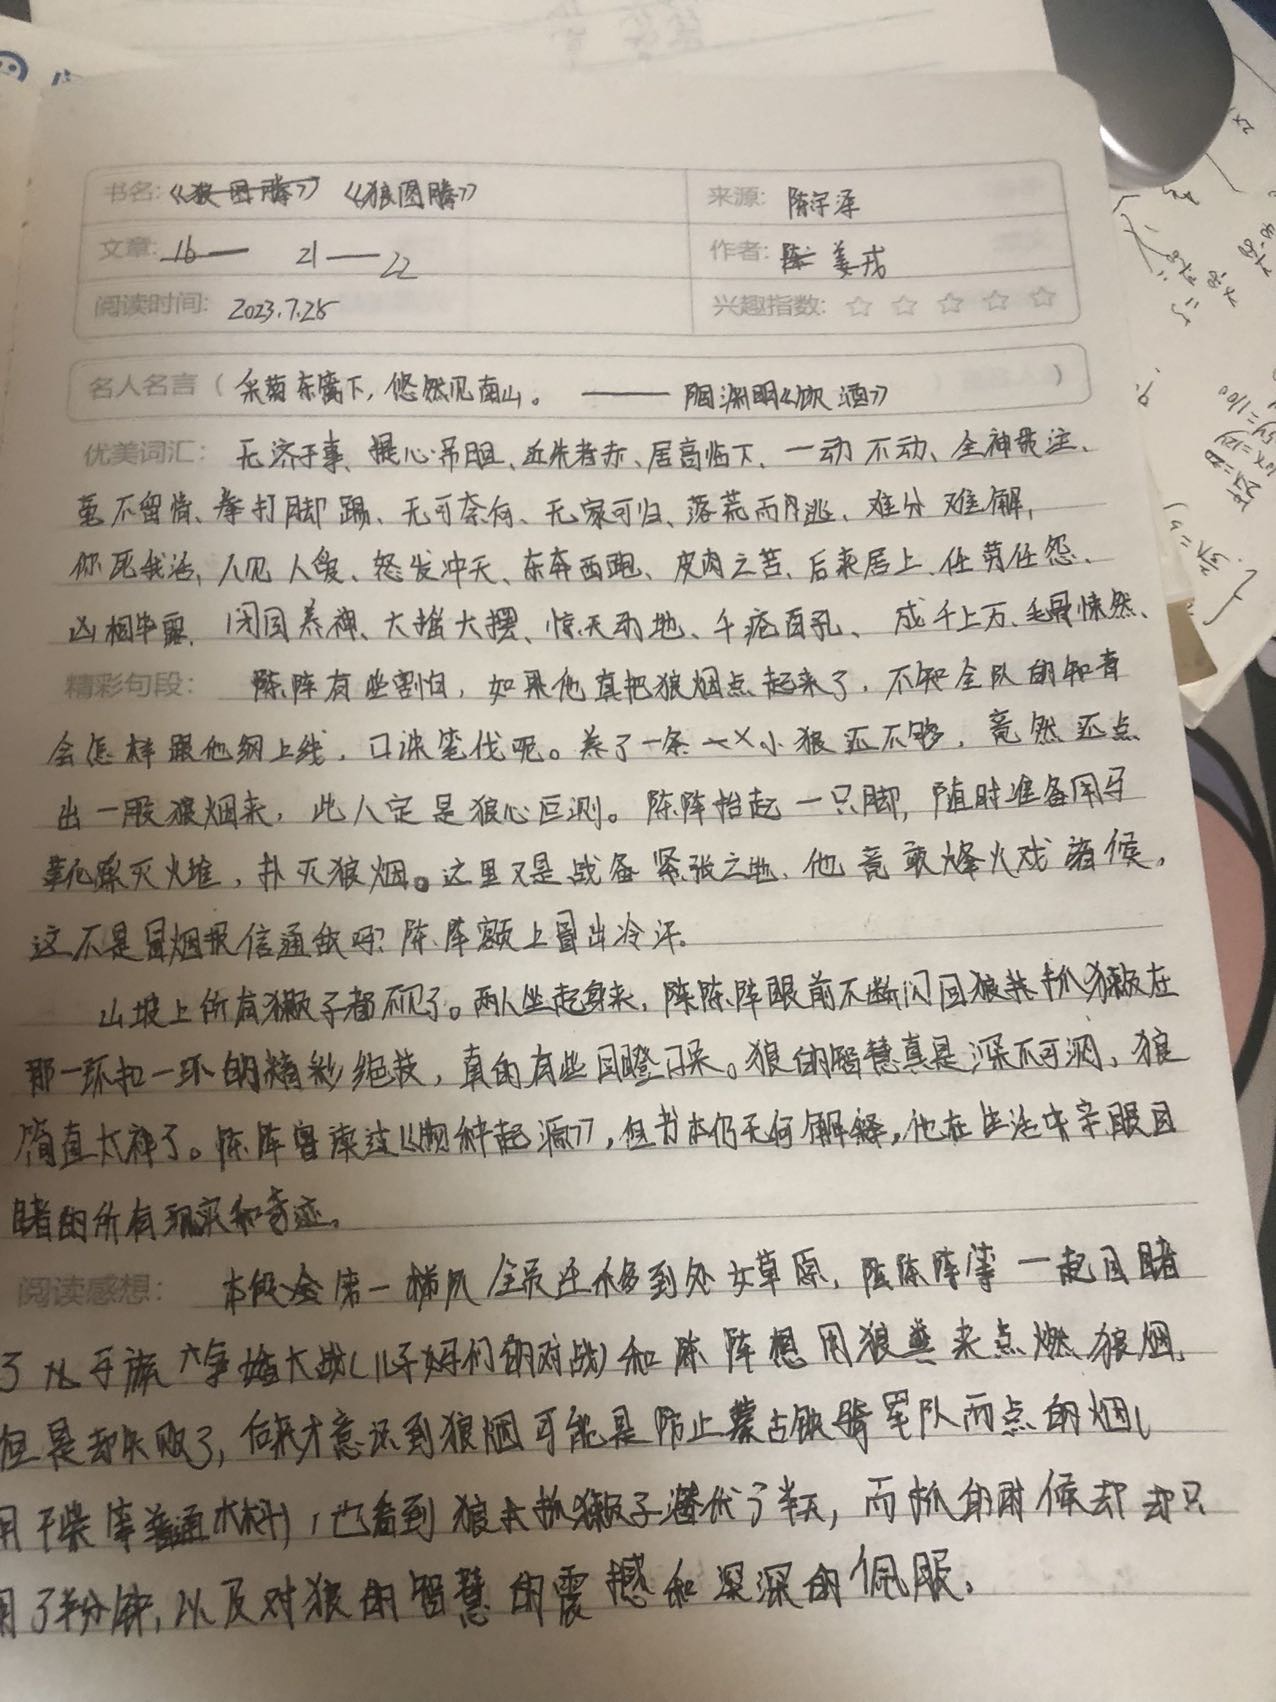 书名: 《狼图腾》 《狼图腾》 来源: 陈宇泽
文章: 16— 21——22 作者: 姜戎
阅读时间: 2023.7.25 兴趣指数: ☆ ☆ ☆ ☆ ☆
名人名言 ( 采菊东篱下,悠然见南山。 —— 陶渊明《饮酒》 )
优美词汇: 无济于事、提心吊胆、近朱者赤、居高临下、一动不动、全神贯注、
毫不留情、拳打脚踢、无可奈何、无家可归、落荒而逃、难分难解,
你死我活,人见人爱、怒发冲天、东奔西跑、皮肉之苦、后来居上、任劳任怨、
凶相毕露、闭目养神、大摇大摆、惊天动地、千疮百孔、成千上万、毛骨悚然、
精彩句段: 陈阵有些害怕,如果他真把狼烟点起来了,不知全队的知青
会怎样跟他纲上线,口诛笔伐呢。养了一条小狼还不够,竟然还点
出一股狼烟来,此人定是狼心叵测。陈阵抬起一只脚,随时准备用马
靴踩灭火堆,扑灭狼烟。这里又是战备紧张之地,他竟敢烽火戏诸侯,
这不是冒烟报信通敌吗?陈阵额上冒出冷汗。
山坡上所有獭子都不见了。两人坐起身来,陈陈阵眼前不断闪回狼群抓獭在
那一环扣一环的精彩绝技,真的有些目瞪口呆。狼的智慧真是深不可测,狼
简直太神了。陈阵曾读过《物种起源》,但书本仍无何解释,他在生活中亲眼目
睹的所有现实和奇迹。
阅读感想: 本段会第一梯队全员迁移到处女草原,陈阵等一起目睹
了儿子旗大争雄大战(儿子马们的对战)和陈阵想用狼粪来点燃狼烟,
但是却失败了,后来才意识到狼烟可能是防止蒙古铁骑军队而点的烟(
用干柴等普通木料),也看到狼去抓獭子潜伏了半天,而抓的时候却却只
用了半分钟,以及对狼的智慧的震撼和深深的佩服。